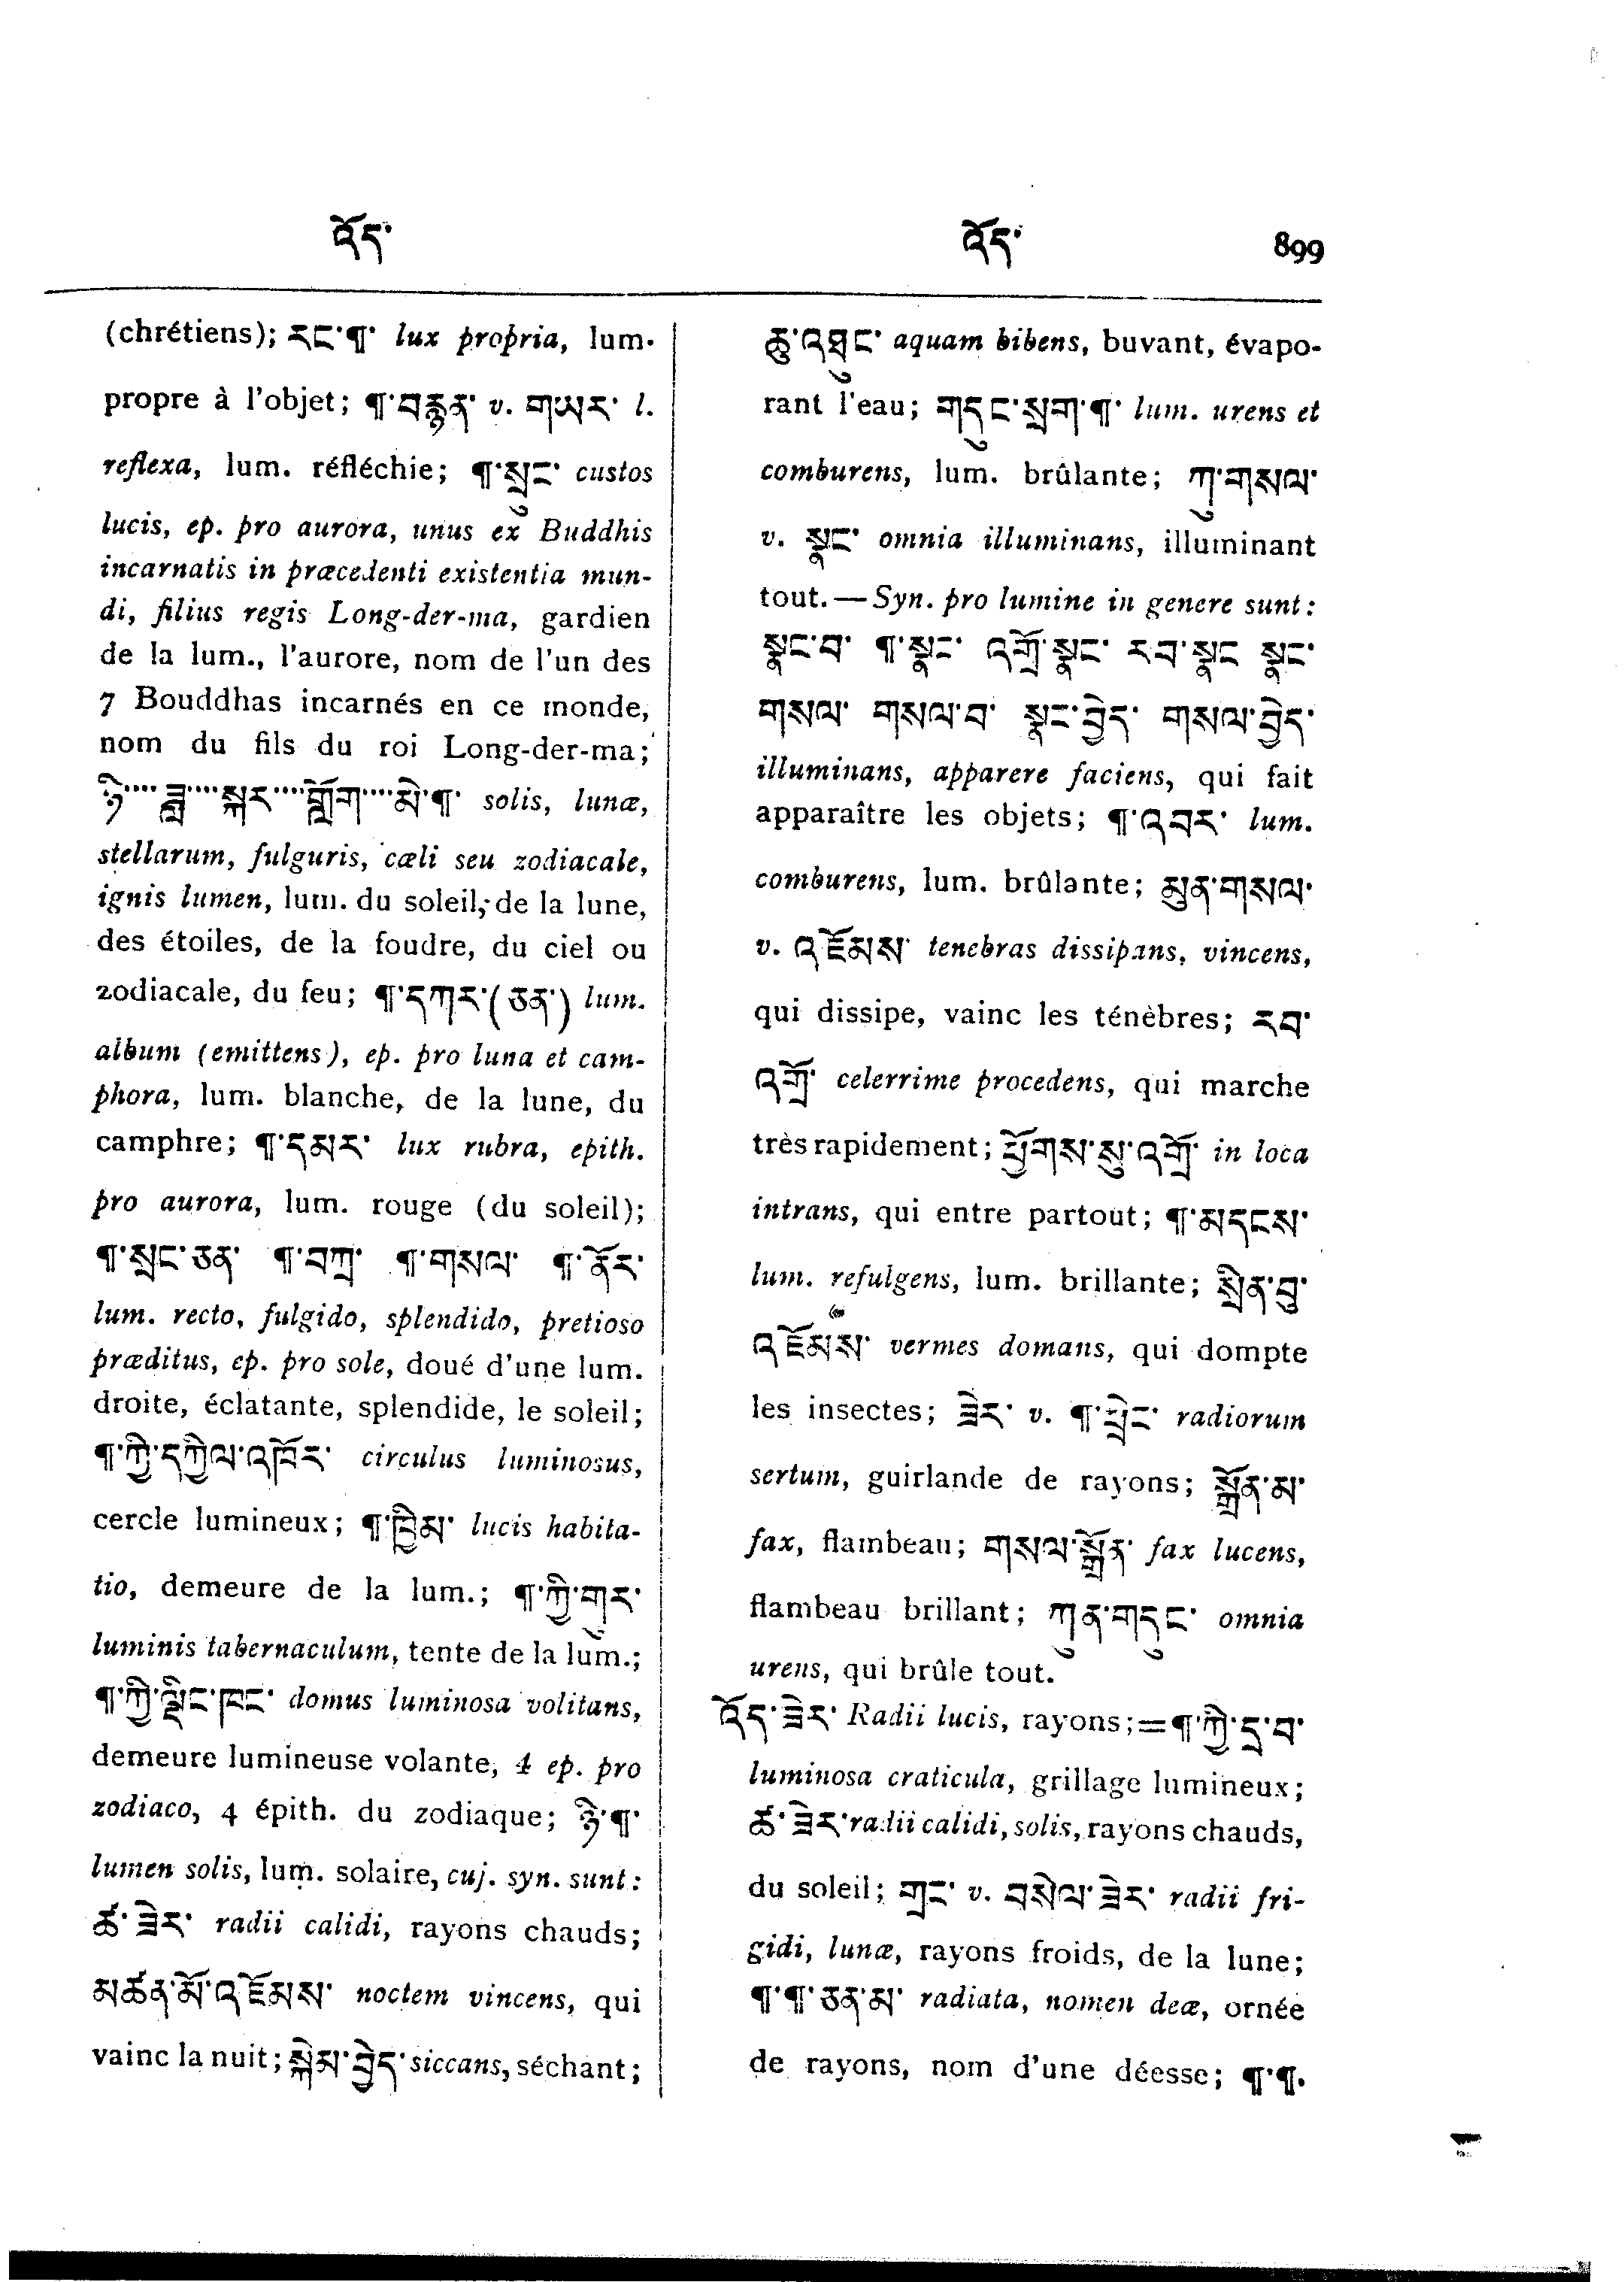 འོད་ འོད་ 899
(chrétiens); རང་¶་ lux propria, lum.
propre à l'objet; ¶་བརྙན་ v. གཡར་ l.
reflexa, lum. réfléchie; ¶་སྲུང་ custos
lucis, ep. pro aurora, unus ex Buddhis
incarnatis in præcedenti existentia mun-
di, filius regis Long-der-ma, gardien
de la lum., l'aurore, nom de l'un des
7 Bouddhas incarnés en ce monde,
nom du fils du roi Long-der-ma;
ཉི་···· ཟླ་···· སྐར་···· གློག་···· མེ་¶་ solis, lunæ,
stellarum, fulguris, cæli seu zodiacale,
ignis lumen, lum. du soleil, de la lune,
des étoiles, de la foudre, du ciel ou
zodiacale, du feu; ¶་དཀར་(ཅན་) lum.
album (emittens), ep. pro luna et cam-
phora, lum. blanche, de la lune, du
camphre; ¶་དམར་ lux rubra, epith.
pro aurora, lum. rouge (du soleil);
¶་སྲང་ཅན་ ¶་བཀྲ་ ¶་གསལ་ ¶་ནོར་
lum. recto, fulgido, splendido, pretioso
præditus, ep. pro sole, doué d'une lum.
droite, éclatante, splendide, le soleil;
¶་ཀྱི་དཀྱིལ་འཁོར་ circulus luminosus,
cercle lumineux; ¶་ཁྱིམ་ lucis habita-
tio, demeure de la lum.; ¶་ཀྱི་གུར་
luminis tabernaculum, tente de la lum.;
¶་ཀྱི་ལྡིང་ཁང་ domus luminosa volitans,
demeure lumineuse volante, 4 ep. pro
zodiaco, 4 épith. du zodiaque; ཉི་¶་
lumen solis, lum. solaire, cuj. syn. sunt:
ཚ་ཟེར་ radii calidi, rayons chauds;
མཚན་མོ་འཇོམས་ noctem vincens, qui
vainc la nuit; སྐེམ་བྱེད་ siccans, séchant;
ཆུ་འཐུང་ aquam bibens, buvant, évapo-
rant l'eau; གདུང་སྲག་¶་ lum. urens et
comburens, lum. brûlante; ཀུ་གསལ་
v. སྣང་ omnia illuminans, illuminant
tout. — Syn. pro lumine in genere sunt:
སྣང་བ་ ¶་སྣང་ འགྲོ་སྣང་ རབ་སྣང སྣང་
གསལ་ གསལ་བ་ སྣང་བྱེད་ གསལ་བྱེད་
illuminans, apparere faciens, qui fait
apparaître les objets; ¶་འབར་ lum.
comburens, lum. brûlante; མུན་གསལ་
v. འཇོམས་ tenebras dissipans, vincens,
qui dissipe, vainc les ténèbres; རབ་
འགྲོ་ celerrime procedens, qui marche
très rapidement; ཕྱོགས་སུ་འགྲོ་ in loca
intrans, qui entre partout; ¶་མདངས་
lum. refulgens, lum. brillante; སྲིན་བུ་
འཇོམས་ vermes domans, qui dompte
les insectes; ཟེར་ v. ¶་ཕྲེང་ radiorum
sertum, guirlande de rayons; སྒྲོན་མ་
fax, flambeau; གསལ་སྒྲོན་ fax lucens,
flambeau brillant; ཀུན་གདུང་ omnia
urens, qui brûle tout.
འོད་ཟེར་ Radii lucis, rayons; = ¶་ཀྱི་དྲ་བ་
luminosa craticula, grillage lumineux;
ཚ་ཟེར་ radii calidi, solis, rayons chauds,
du soleil; གྲང་ v. བསིལ་ཟེར་ radii fri-
gidi, lunæ, rayons froids, de la lune;
¶་¶་ཅན་མ་ radiata, nomen deæ, ornée
de rayons, nom d'une déesse; ¶་¶་